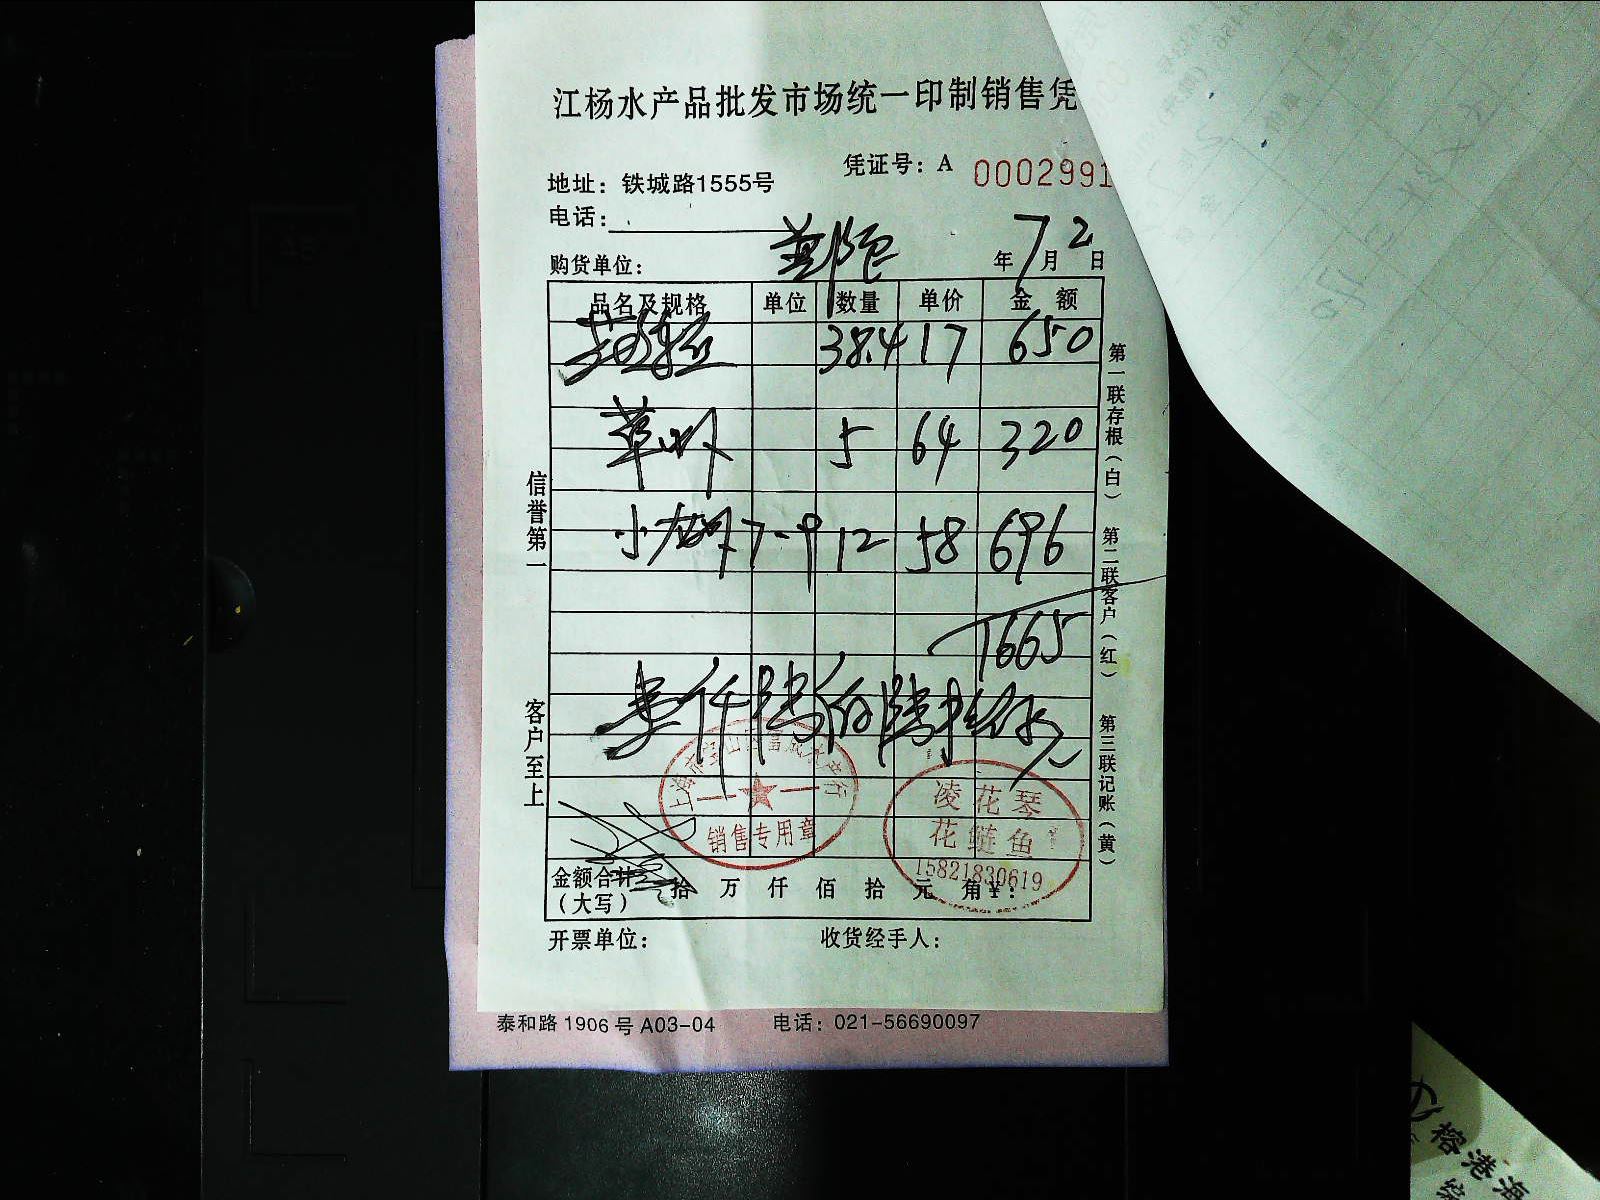 江杨水产品批发市场统一印制销售凭
凭证号：A 0002991
地址：铁城路1555号
电话：
购货单位： 年7月2日
品名及规格 单位 数量 单价 金额
38.4 17 650
草虾 5 64 320
小龙虾 7-9 12 58 696
1665
壹仟陆佰陆拾伍元
上海市宝山区富成水产行
销售专用章
凌花琴
花鲢鱼
15821830619
金额合计（大写） 拾 万 仟 佰 拾 元 角 ¥：
开票单位： 收货经手人：
信誉第一
客户至上
第一联存根（白）
第二联客户（红）
第三联记账（黄）
泰和路1906号A03-04 电话：021-56690097
榕港海